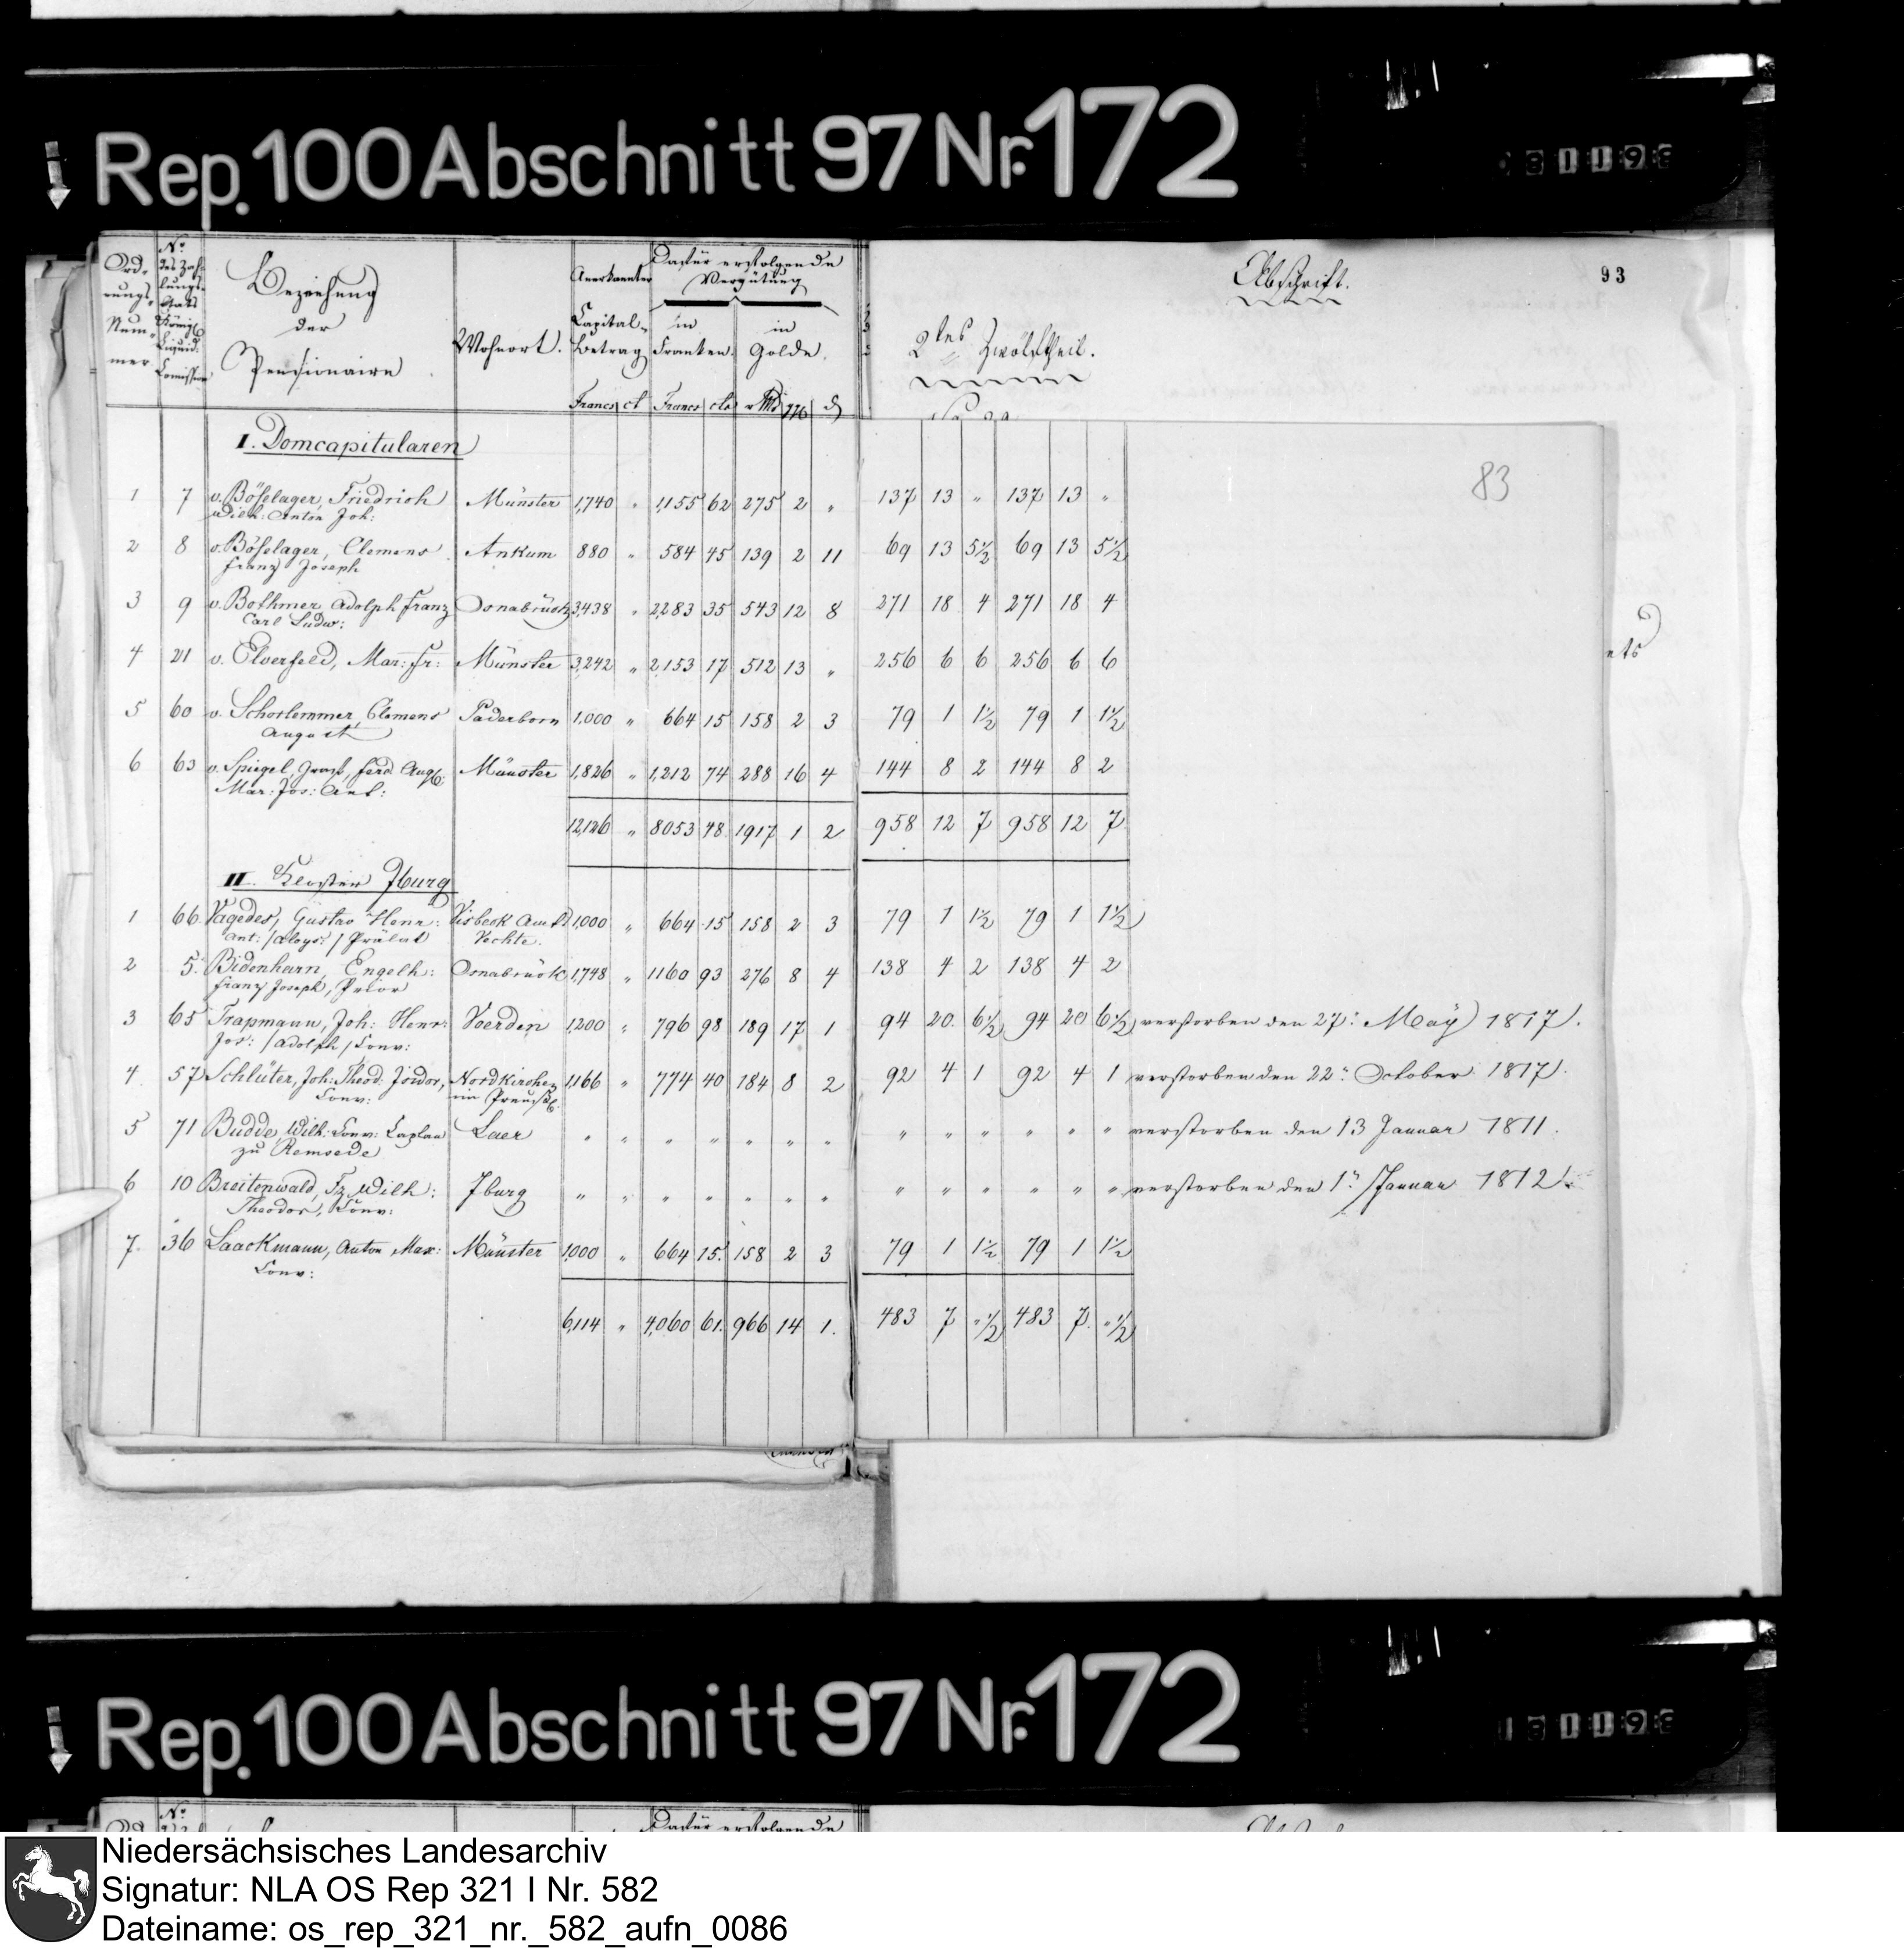 Rep. 100 Abschnitt 97 Nr. 172
93
Ord-
nungs-
Num-
mer
No
des Zah-
lungs-
Etats
Königl
Liquid:
Comission
Beziehung
der
Pensionaire
Wohnort.
Anerkannter
Capital-
betrag
Francs ct
Dafür erfolgende
Vergütung
in
Franken.
in
Golde.
Francs cts
Abschrift.
2tes Zwölftheil.
83
I. Domcapitularen
1 7 v. Böselager, Friedrich Münster 1,740 " 1,155 62 275 2 " 137 13 " 137 13 "
Wilh: Anton Joh:
2 8 v. Böselager, Clemens Ankum 880 " 584 45 139 2 11 69 13 5½ 69 13 5½
Franz Joseph
3 9 v. Bothmer, Adolph Franz Osnabrück 3,438 " 2,283 35 543 12 8 271 18 4 271 18 4
Carl Ludw:
4 21 v. Elverfeld, Max: Fr: Münster 3,242 " 2,153 17 512 13 " 256 6 6 256 6 6
5 60 v. Schorlemmer, Clemens Paderborn 1,000 " 664 15 158 2 3 79 1 1½ 79 1 1½
August
6 63 v. Spiegel, Graf, Ferd. Aug. Münster 1,826 " 1,212 74 288 16 4 144 8 2 144 8 2
Mar: Jos: Ant:
12,126 " 8053 48 1917 1 2 958 12 7 958 12 7
II. Kloster Jburg
1 66 Vagedes, Gustav Henr: Visbeck Amts 1,000 " 664 15 158 2 3 79 1 1½ 79 1 1½
Ant: /Aloys:/ Prälat Vechte.
2 5. Bidenharn, Engelh: Osnabrück 1,748 " 1160 93 276 8 4 138 4 2 138 4 2
Franz Joseph, Prior
3 65 Trapmann, Joh: Henr: Voerden 1,200 " 796 98 189 17 1 94 20. 6½ 94 20 6½ verstorben den 27: Maÿ 1817.
Jos: /Adolph/ Conv:
4. 57 Schlüter, Joh: Theod: Isidor, Nordkirchen 1,166 " 774 40 184 8 2 92 4 1 92 4 1 verstorben den 22: October 1817.
Conv: im Preuß.
5 71 Budde, Wilh: Conv: Caplan Laer " " " " " " " " " " " " " verstorben den 13 Januar 1811.
zu Remsede
6 10 Breitenwald, Fz. Wilh: Jburg " " " " " " " " " " " " " verstorben den 1: Januar 1812.
Theodor, Conv:
7. 36 Laackmann, Anton Max: Münster 1,000 " 664 15. 158 2 3 79 1 1½ 79 1 1½
Conv:
6,114 " 4,060 61. 966 14 1. 483 7 "½ 483 7. "½
Rep. 100 Abschnitt 97 Nr. 172
No
Dafür erfolgende
Niedersächsisches Landesarchiv
Signatur: NLA OS Rep 321 I Nr. 582
Dateiname: os_rep_321_nr._582_aufn_0086